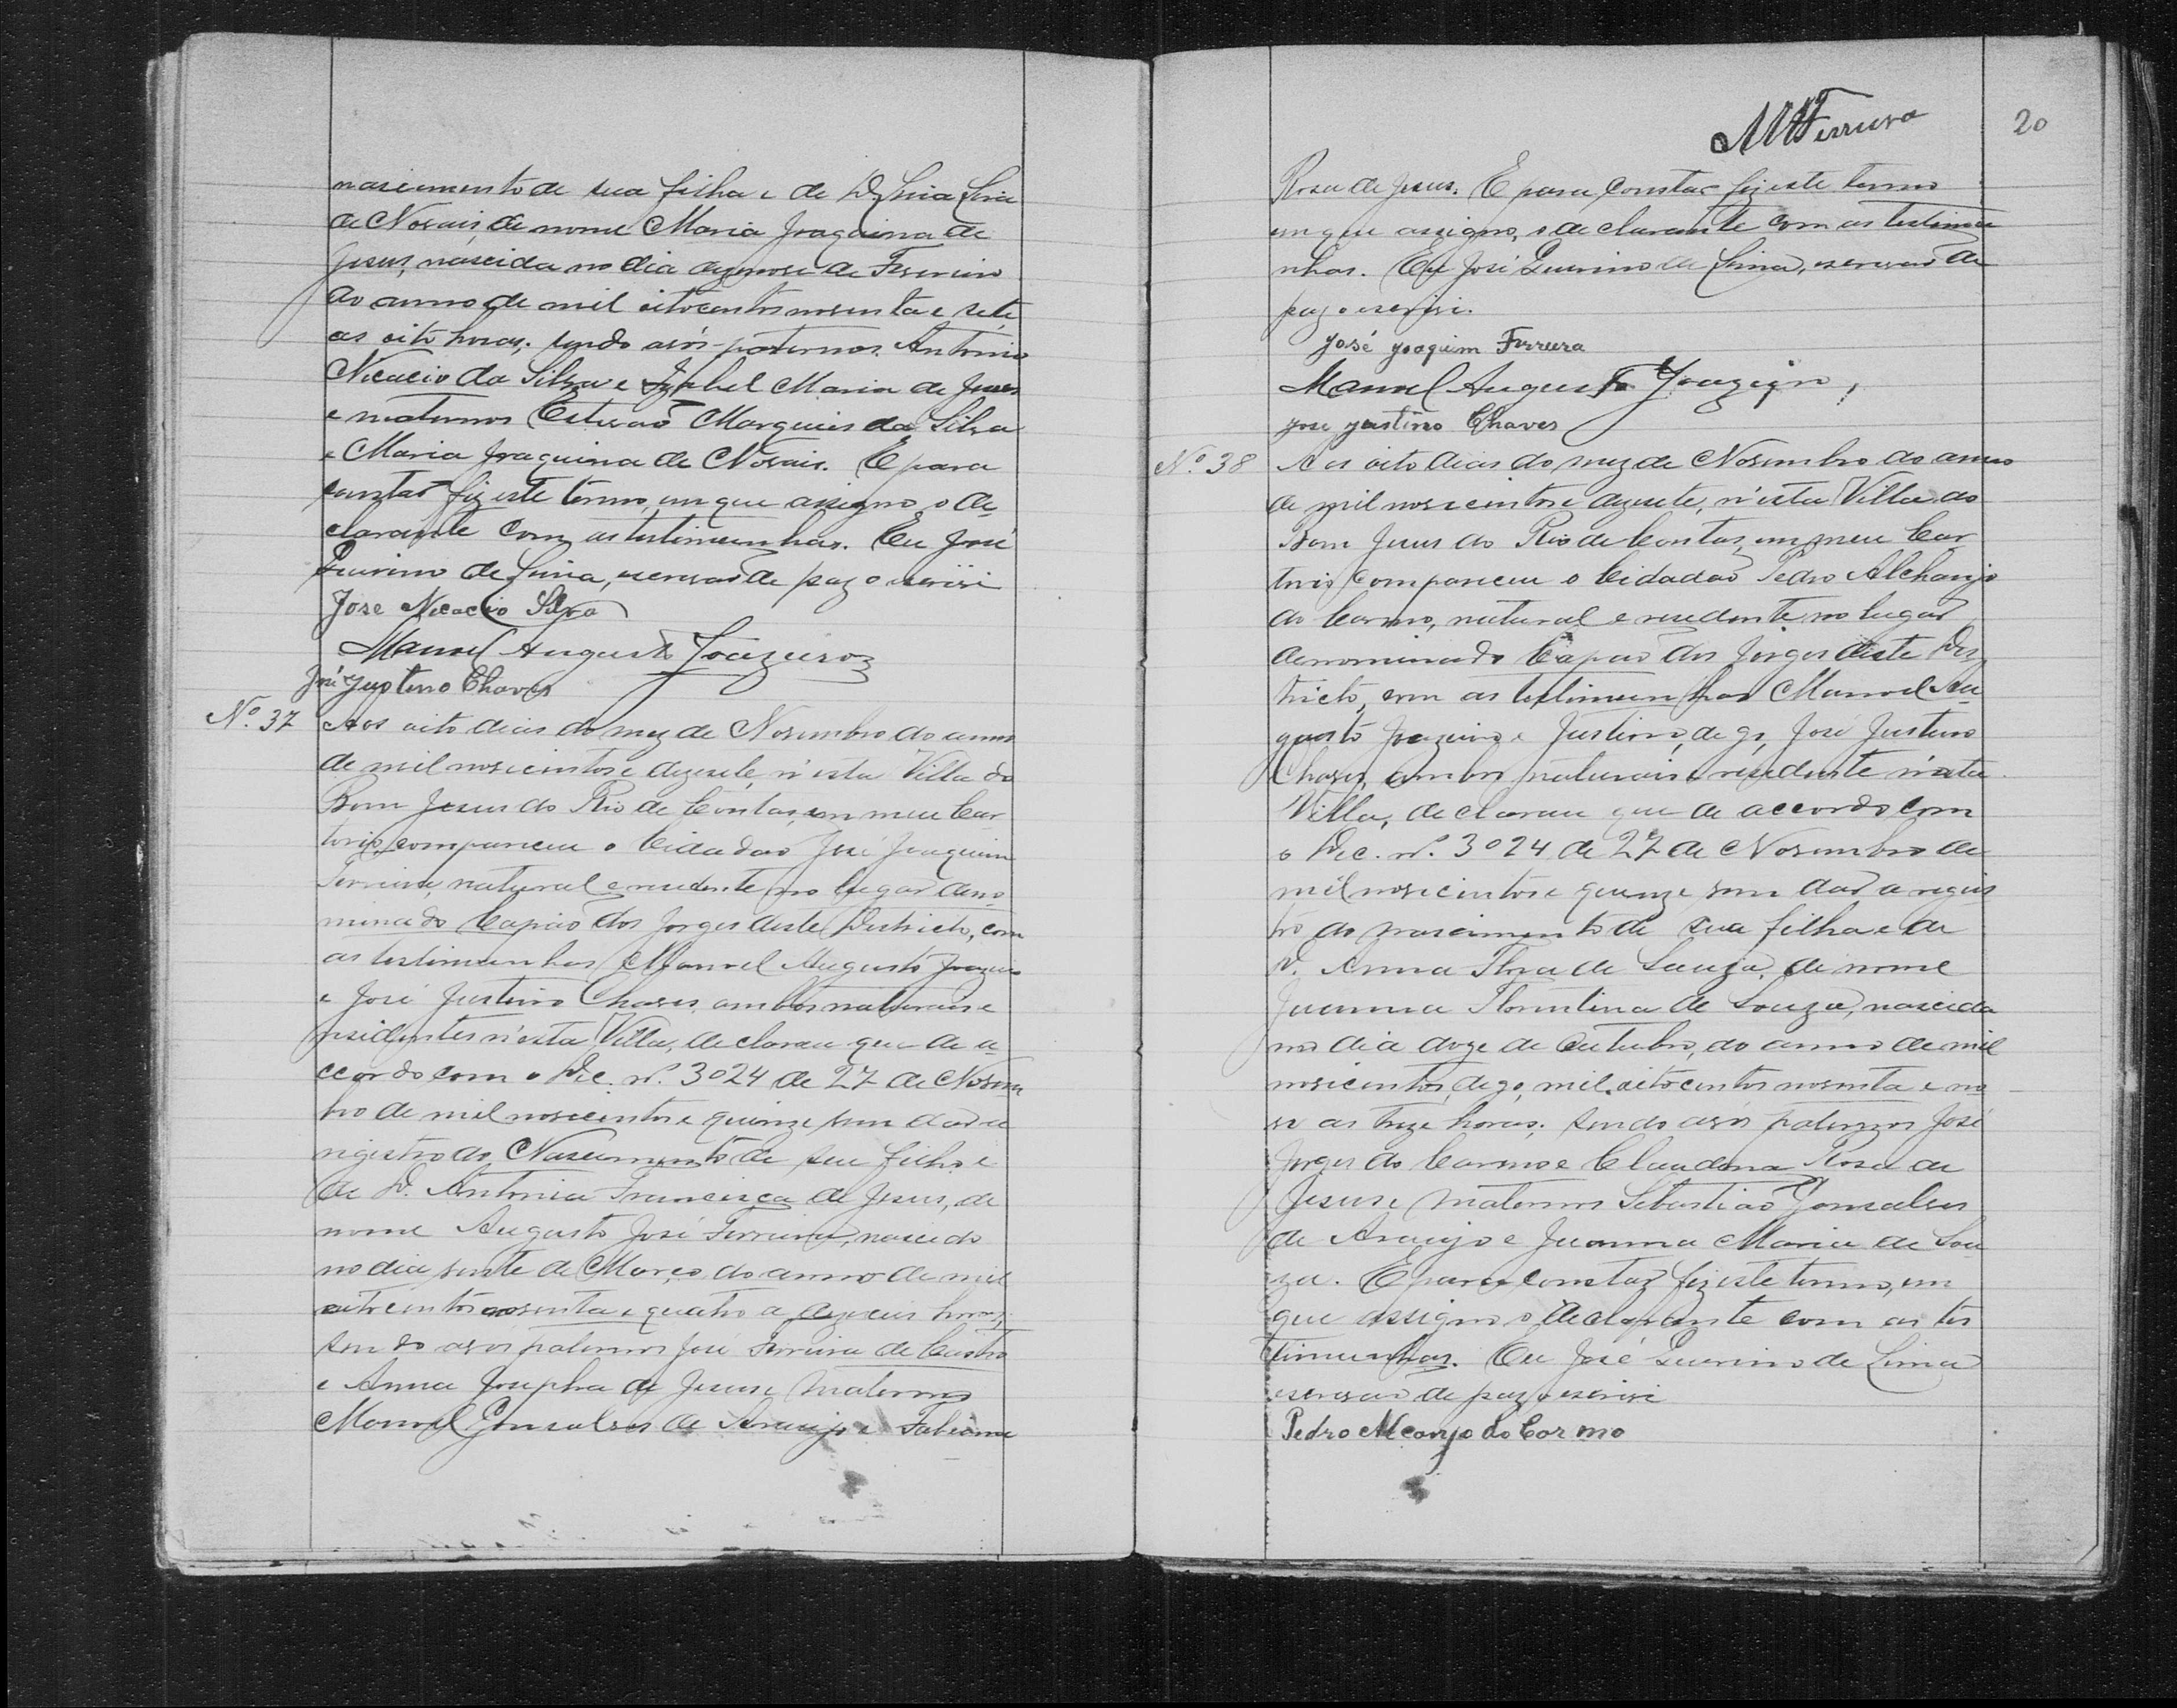 nascimento de sua filha e de D. Livia
de Novais, de nome Maria Joaquina de
Jesus, nascida no dia dezenove de Fevereiro
do anno de mil oitocentos noventa e sete
as oito horas, sendo avós paternos Antonio
Nicacio da Silva e Izabel Maria de Jesus
e maternos Estevaõ Marques da Silva
e Maria Joaquina de Novais. E para
constar fiz este termo, em que assigno o de
clarante com as testimunhas. Eu José
Quirino de Lima, escrivaõ de paz o escrivi
Jose Nicacio Silva
Manoel Augusto Joazeiro
José Justino Chaves
Nº. 37 Aos oito dias do mez de Novembro do anno
de mil novecentos e dezesete, n'esta Villa do
Bom Jesus do Rio de Contas, em meu Car
torio, compareceu o Cidadaõ José Joaquim
Ferreira, natural e residente no lugar deno
minado Capaõ dos Jorges deste Districto, com
as testimunhas Manoel Augusto Joazeiro
e José Justino Chaves, ambos naturais e
residentes n'esta Villa, declarou que de a
ccordo com o Dec. nº. 3024 de 27 de Novem
bro de mil novecentos e quinze vem dar a
registro do Nascimento de seu filho e
de D. Antonia Francisca de Jesus, de
nome Augusto José Ferreira, nascido
no dia vinte de Março do anno de mil
oitocentos noventa e quatro a dezeseis horas,
sendo avos paternos José Ferreira de Castro
e Anna Josepha de Jesus e maternos
Manoel Gonsalves de Araujo e Fabiana
MAFerreira
20
Rosa de Jesus. E para constar fiz este termo
em que assigno, o declarante com as testimu
nhas. Eu José Quirino de Lima, escrivaõ de
paz o escrivi.
José Joaquim Ferreira
Manoel Augusto Joazeiro
José Justino Chaves
Nº. 38 Aos oito dias do mez de Novembro do anno
de mil novecentos e dezesete, n'esta Villa do
Bom Jesus do Rio de Contas, em meu Car
torio compareceu o Cidadaõ Pedro Alchanjo
do Carmo, natural e residente no lugar
denominado Capaõ dos Jorges deste Dis
tricto, com as testimunhas Manoel Au
gusto Joazeiro e Justino, digo, José Justino
Chaves, ambos naturais e residente n'esta
Villa, declarou que de accordo com
o Dec. nº. 3024 de 27 de Novembro de
mil novecentos e quinze vem dar a regis
tro do nascimento de sua filha e de
D. Anna Flora de Sauza, de nome
Juanna Florentina de Souza, nascida
no dia doze de Outubro, do anno de mil
novecentos, digo, mil oitocentos noventa e no
ve as treze horas; sendo avós paternos José
Jorges do Carmo e Claudina Rosa de
Jesus e maternos Sebastiaõ Gonsalves
de Araujo e Juanna Maria de Sou
za. E para constar fiz este termo, em
que assigno o declarante com as tes
timunhas. Eu José Quirino de Lima
escrivaõ de paz o escrivi
Pedro Alcanjo do Carmo